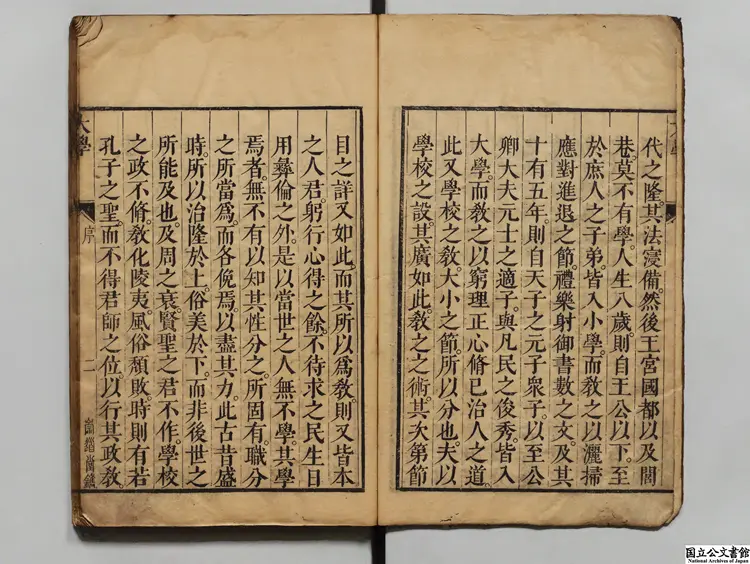 代之隆。其法寖備。然後王宮國都以及閭
巷。莫不有學。人生八歲。則自王公以下。至
於庶人之子弟。皆入小學。而敎之以灑掃
應對進退之節。禮樂射御書數之文。及其
十有五年。則自天子之元子衆子。以至公
卿大夫元士之適子。與凡民之俊秀。皆入
大學。而敎之以窮理正心脩己治人之道。
此又學校之敎。大小之節。所以分也。夫以
學校之設。其廣如此。敎之之術。其次第節
目之詳又如此。而其所以爲敎。則又皆本
之人君。躬行心得之餘。不待求之民生日
用彝倫之外。是以當世之人無不學。其學
焉者。無不有以知其性分之。所固有。職分
之所當爲。而各俛焉。以盡其力。此古昔盛
時。所以治隆於上。俗美於下。而非後世之
所能及也。及周之衰。賢聖之君不作。學校
之政不脩。敎化陵夷。風俗頽敗。時則有若
孔子之聖。而不得君師之位。以行其政敎。
大學 序 二
国立公文書館
National Archives of Japan